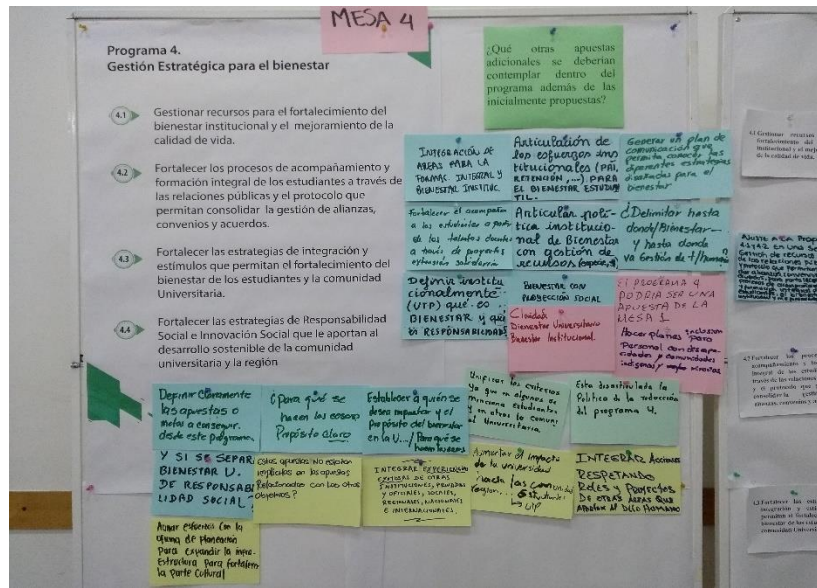 MESA 4
Programa 4.
Gestión Estratégica para el bienestar
4.1 Gestionar recursos para el fortalecimiento del
bienestar institucional y el mejoramiento de la
calidad de vida.
4.2 Fortalecer los procesos de acompañamiento y
formación integral de los estudiantes a través de
las relaciones públicas y el protocolo que
permitan consolidar la gestión de alianzas,
convenios y acuerdos.
4.3 Fortalecer las estrategias de integración y
estímulos que permitan el fortalecimiento del
bienestar de los estudiantes y la comunidad
Universitaria.
4.4 Fortalecer las estrategias de Responsabilidad
Social e Innovación Social que le aporten al
desarrollo sostenible de la comunidad
universitaria y la región
¿Qué otras apuestas
adicionales se deberían
contemplar dentro del
programa además de las
inicialmente propuestas?
INTEGRACIÓN DE
AREAS PARA LA
FORMAC. INTEGRAL Y
BIENESTAR INSTITUC.
Articulación de
los esfuerzos ins
titucionales (PAI,
RETENCIÓN, ...) PARA
EL BIENESTAR ESTUDIAN
TIL.
Generar un plan de
comunicación que
permita conocer las
diferentes estrategias
diseñadas para el
bienestar
Fortalecer el acompaña
a los estudiantes a partir
de los talentos docentes
a través de proyectos
extensión solidaria
Articular polí-
tica institucio-
nal de Bienestar
con gestión de
recursos
¿Delimitar hasta
donde/Bienestar--
y hasta donde
va Gestión de t/humano?
Definir institu
cionalmente
(UTP) que es
BIENESTAR y que
es RESPONSABILIDAD
BIENESTAR CON
PROYECCIÓN SOCIAL
Claridad:
Bienestar Universitario
Bienestar Institucional
El PROGRAMA 4
PODRIA SER UNA
APUESTA DE LA
MESA 1
Hacer planes inclusion
para
Personal con discapa-
cidades y comunidades
indigenas y negro
Definir claramente
las apuestas o
metas a conseguir
desde este programa
¿para qué se
hacen las cosas
Propósito claro
Establecer a quién se
desea impactar y el
Propósito del bienestar
en la U.../ Para qué se
hacen las cosas
Unificar los criterios
ya que en algunos se
menciona estudiantes
y en otros la comuni
ad Universitaria.
Esta desarticulada la
Politica de la redacción
del programa 4.
Y SI SE SEPARA
BIENESTAR U.
DE RESPONSABI
LIDAD SOCIAL?
Estas apuestas No estarían
implicitas en las apuestas
Relacionadas con los otros
Objetivos?
INTEGRAR EXPERIENCIAS
EXITOSAS DE OTRAS
INSTITUCIONES, PRIVADAS
Y OFICIALES, LOCALES,
REGIONALES, NACIONALES
E INTERNACIONALES.
Aumentar el impacto
de la universidad
hacia las comunidad
region... Estudiantes
UTP
INTEGRAR Acciones
RESPETANDO
Roles y Proyectos
DE OTRAS AREAS QUE
APORTAN AL DLLO HUMANO
Aunar esfuerzos con la
oficina de Planeación
para expandir la infra-
Estructura para fortalecer
la parte Cultural